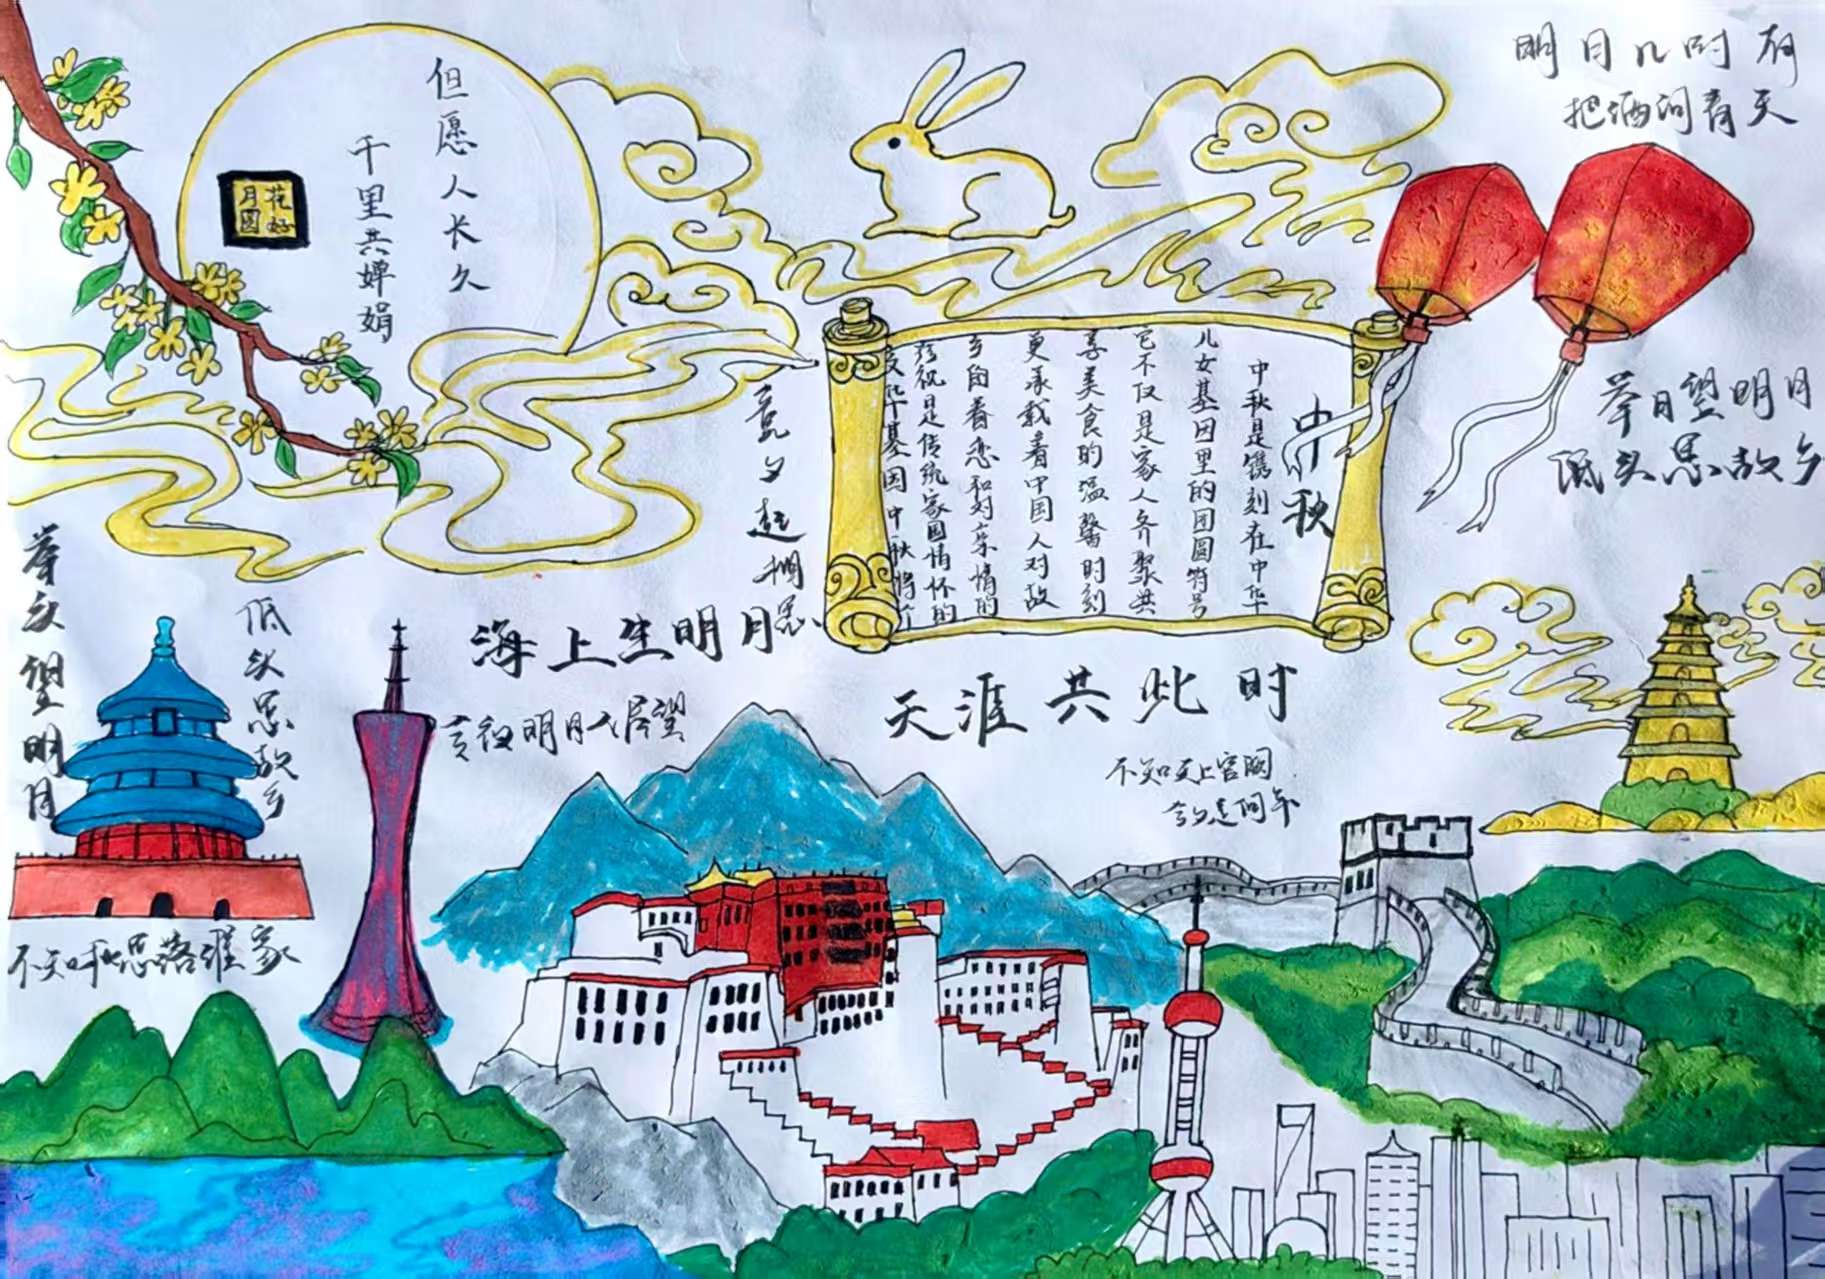 但愿人长久
千里共婵娟
花好
月圆
明月几时有
把酒问青天
举目望明月
低头思故乡
中秋
中秋是镌刻在中华
儿女基因里的团圆符号
它不仅是家人齐聚共
享美食的温馨时刻
更承载着中国人对故
乡的眷恋和对亲情的
珍视是传统家国情怀的
竟夕起相思
海上生明月
天涯共此时
不知天上宫阙
今夕是何年
今夜明月人尽望
不知秋思落谁家
举头望明月
低头思故乡